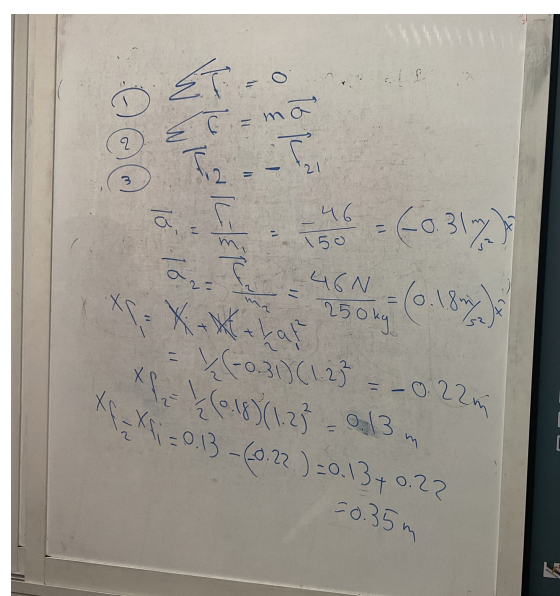 ① ∑F⃗ = 0
② ∑F⃗ = ma⃗
③ F⃗12 = - F⃗21
a̅1 = F⃗1/m1 = -46/150 = (-0.31 m/s²) x̂
a̅2 = F⃗2/m2 = 46N/250kg = (0.18 m/s²) x̂
Xf1 = Xi + Vit + 1/2 at1²
= 1/2 (-0.31)(1.2)² = - 0.22m
Xf2 = 1/2 (0.18)(1.2)² = 0.13 m
Xf2 - Xf1 = 0.13 - (-0.22) = 0.13 + 0.22
= 0.35 m